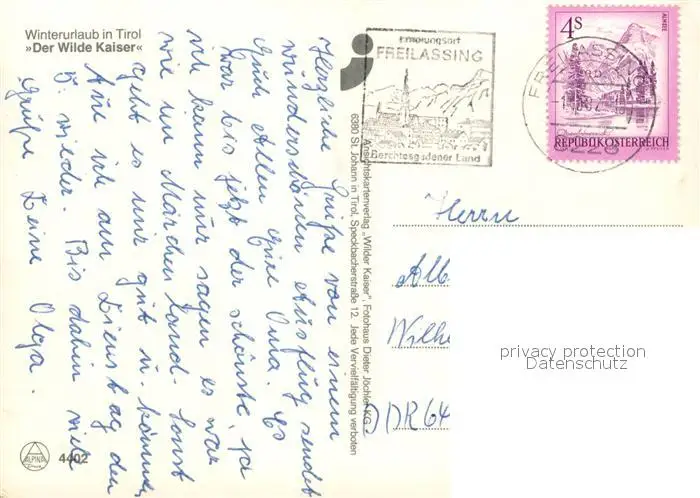 Winterurlaub in Tirol
»Der Wilde Kaiser«
Herzliche Grüße von einem
wunderschönen Ausflug sendet
Euch Allen Eure Oma. Es
war bis jetzt der schönste, ja
ich kann nur sagen es war
wie im Märchenland. Sonst
geht es mir gut u. könnte,
Ane ich am Dienstag den
5. wieder. Bis dahin viele
Grüße Deine Olga.
ALPINA
4402
Ansichtskartenverlag „Wilder Kaiser", Fotohaus Dieter Jöchler KG
6380 St. Johann in Tirol, Speckbacherstraße 12. Jede Vervielfältigung verboten
Erholungsort
FREILASSING
Berchtesgadener Land
FREILASSING
4S
ALMSEE
REPUBLIK ÖSTERREICH
8228
Herrn
Alb
Wilhe
DDR 64
privacy protection
Datenschutz